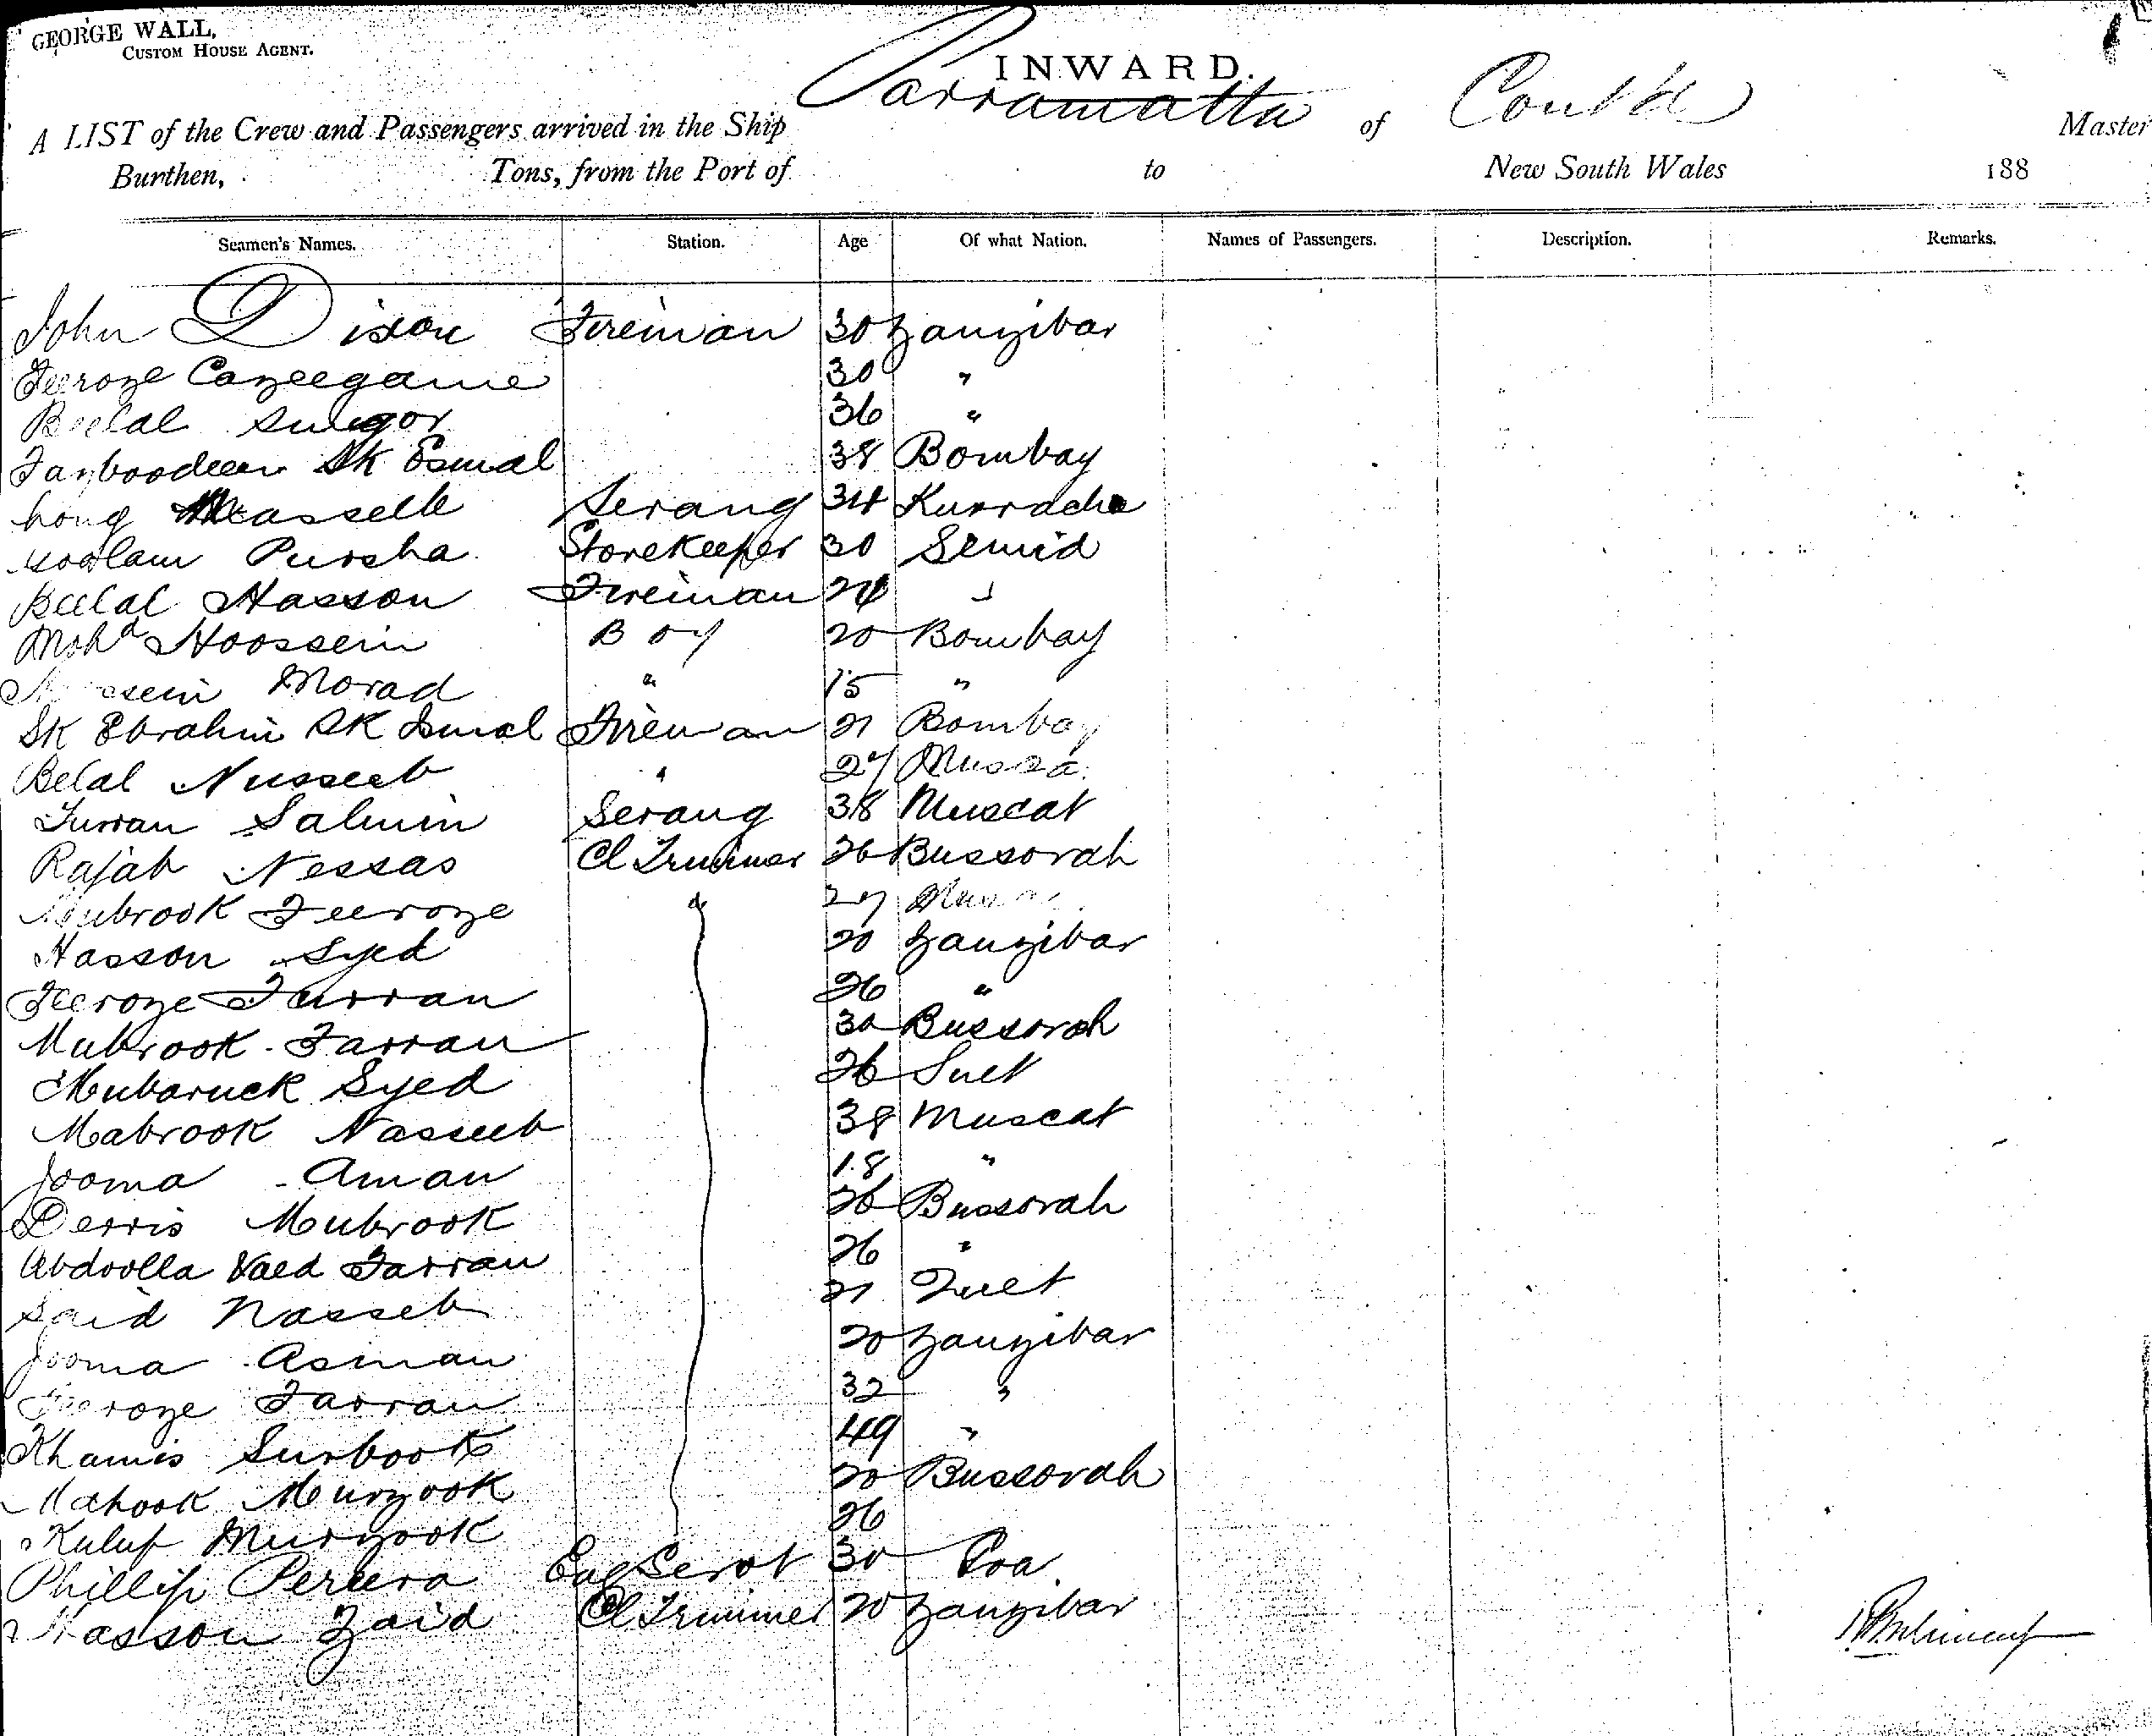 GEORGE WALL,
CUSTOM HOUSE AGENT.
INWARD.
A LIST of the Crew and Passengers arrived in the Ship Parramatta of Master
Burthen, Tons, from the Port of to New South Wales 188
Seamen's Names. Station. Age Of what Nation. Names of Passengers. Description. Remarks.
John Dixon Fireman 30 Zanzibar
Feeroze Cazeegame 30 "
Beelal 36 "
Sk Esmal 38 Bombay
Serang 34 Kurrache
Goolam Pursha Storekeeper 30
Beelal Hasson Fireman
Mohd Hoossein Boy 20 Bombay
Morad " 15 "
Sk Ebrahim Sk Ismal Fireman 21 Bombay
Belal Nusseeb " 27
Furran Salmin Serang 38 Muscat
Rajab Nessas Cl Trimmer 26 Bussorah
Mubrook Feeroze " 27
Hasson Syed 20 Zanzibar
Feeroze Furran 26 "
Mubrook Farran 30 Bussorah
Mubaruck Syed 26
Mabrook Nasseeb 38 Muscat
Jooma Aman 18 "
Derris Mubrook 26 Bussorah
Abdoolla Vaed Farran 26 "
Said Nasseb 21
Jooma Asman 20 Zanzibar
Feeroze Farran 32 "
Khamis Surbook 49 "
Murzook 20 Bussorah
Kuluf Murzook 26
Phillip Pereera 30 Goa
Hasson Zaid Cl Trimmer 20 Zanzibar